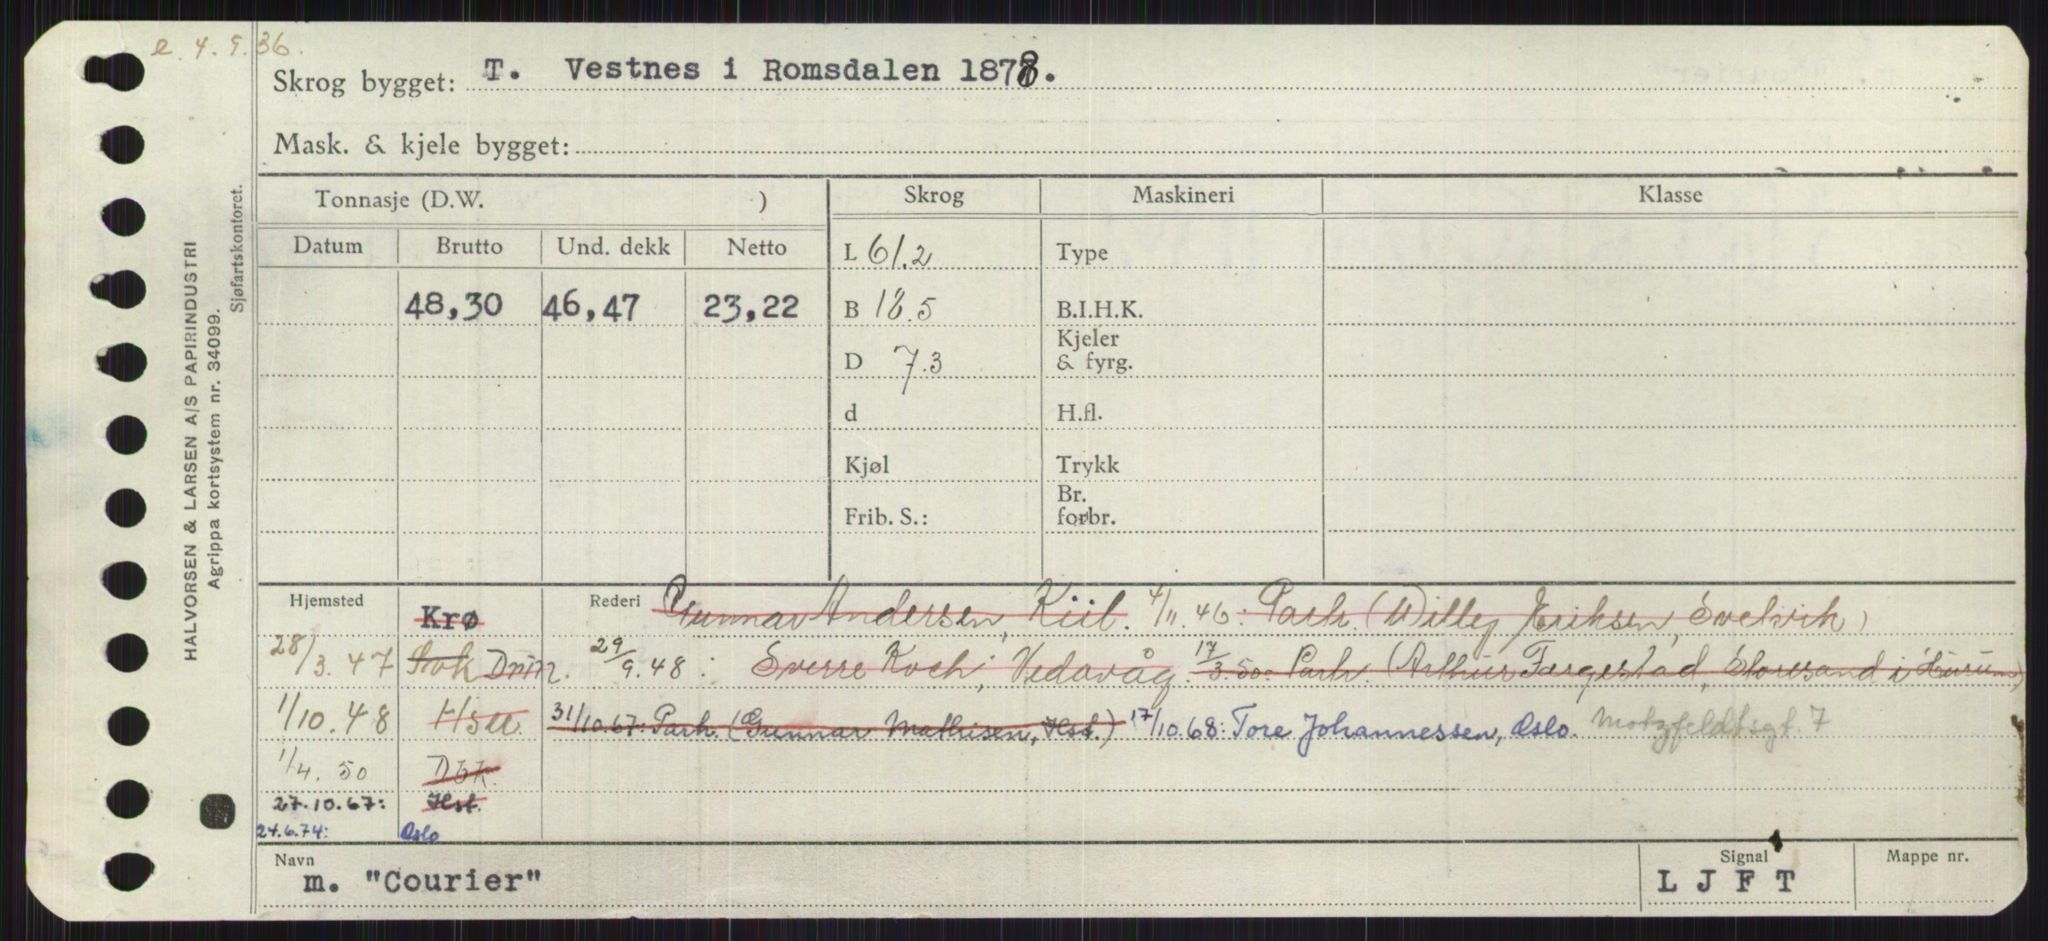 e. 4.9.36.
Skrog bygget: T. Vestnes i Romsdalen 1878.
Mask. & kjele bygget:
HALVORSEN & LARSEN A/S PAPIRINDUSTRI
Agrippa kortsystem nr. 34099.
Sjøfartskontoret.
Tonnasje (D.W. ) Skrog Maskineri Klasse
Datum Brutto Und. dekk Netto L 61.2 Type
48,30 46,47 23,22 B 18.5 B.I.H.K.
D 7.3 Kjeler & fyrg.
d H.fl.
Kjøl Trykk
Frib. S.: Br. forbr.
Hjemsted Krø Rederi Gunnar Andersen, Kiil. 4/11.46: Parh. (Willy Eriksen, Svelvik)
28/3.47 Svk Drm. 29/9.48: Sverre Koch, Vedavåg. 17/3.50: Parh. (Arthur Fargestad, Storesand i Hurum)
1/10.48 31/10.67: Parh. (Gunnar Mathisen, Hst.) 17/10.68: Tore Johannessen, Oslo. Motzfeldtsgt. 7
1/4.50 Dbk.
27.10.67: Hst.
24.6.74: Oslo
Navn m. "Courier" Signal L J F T Mappe nr.